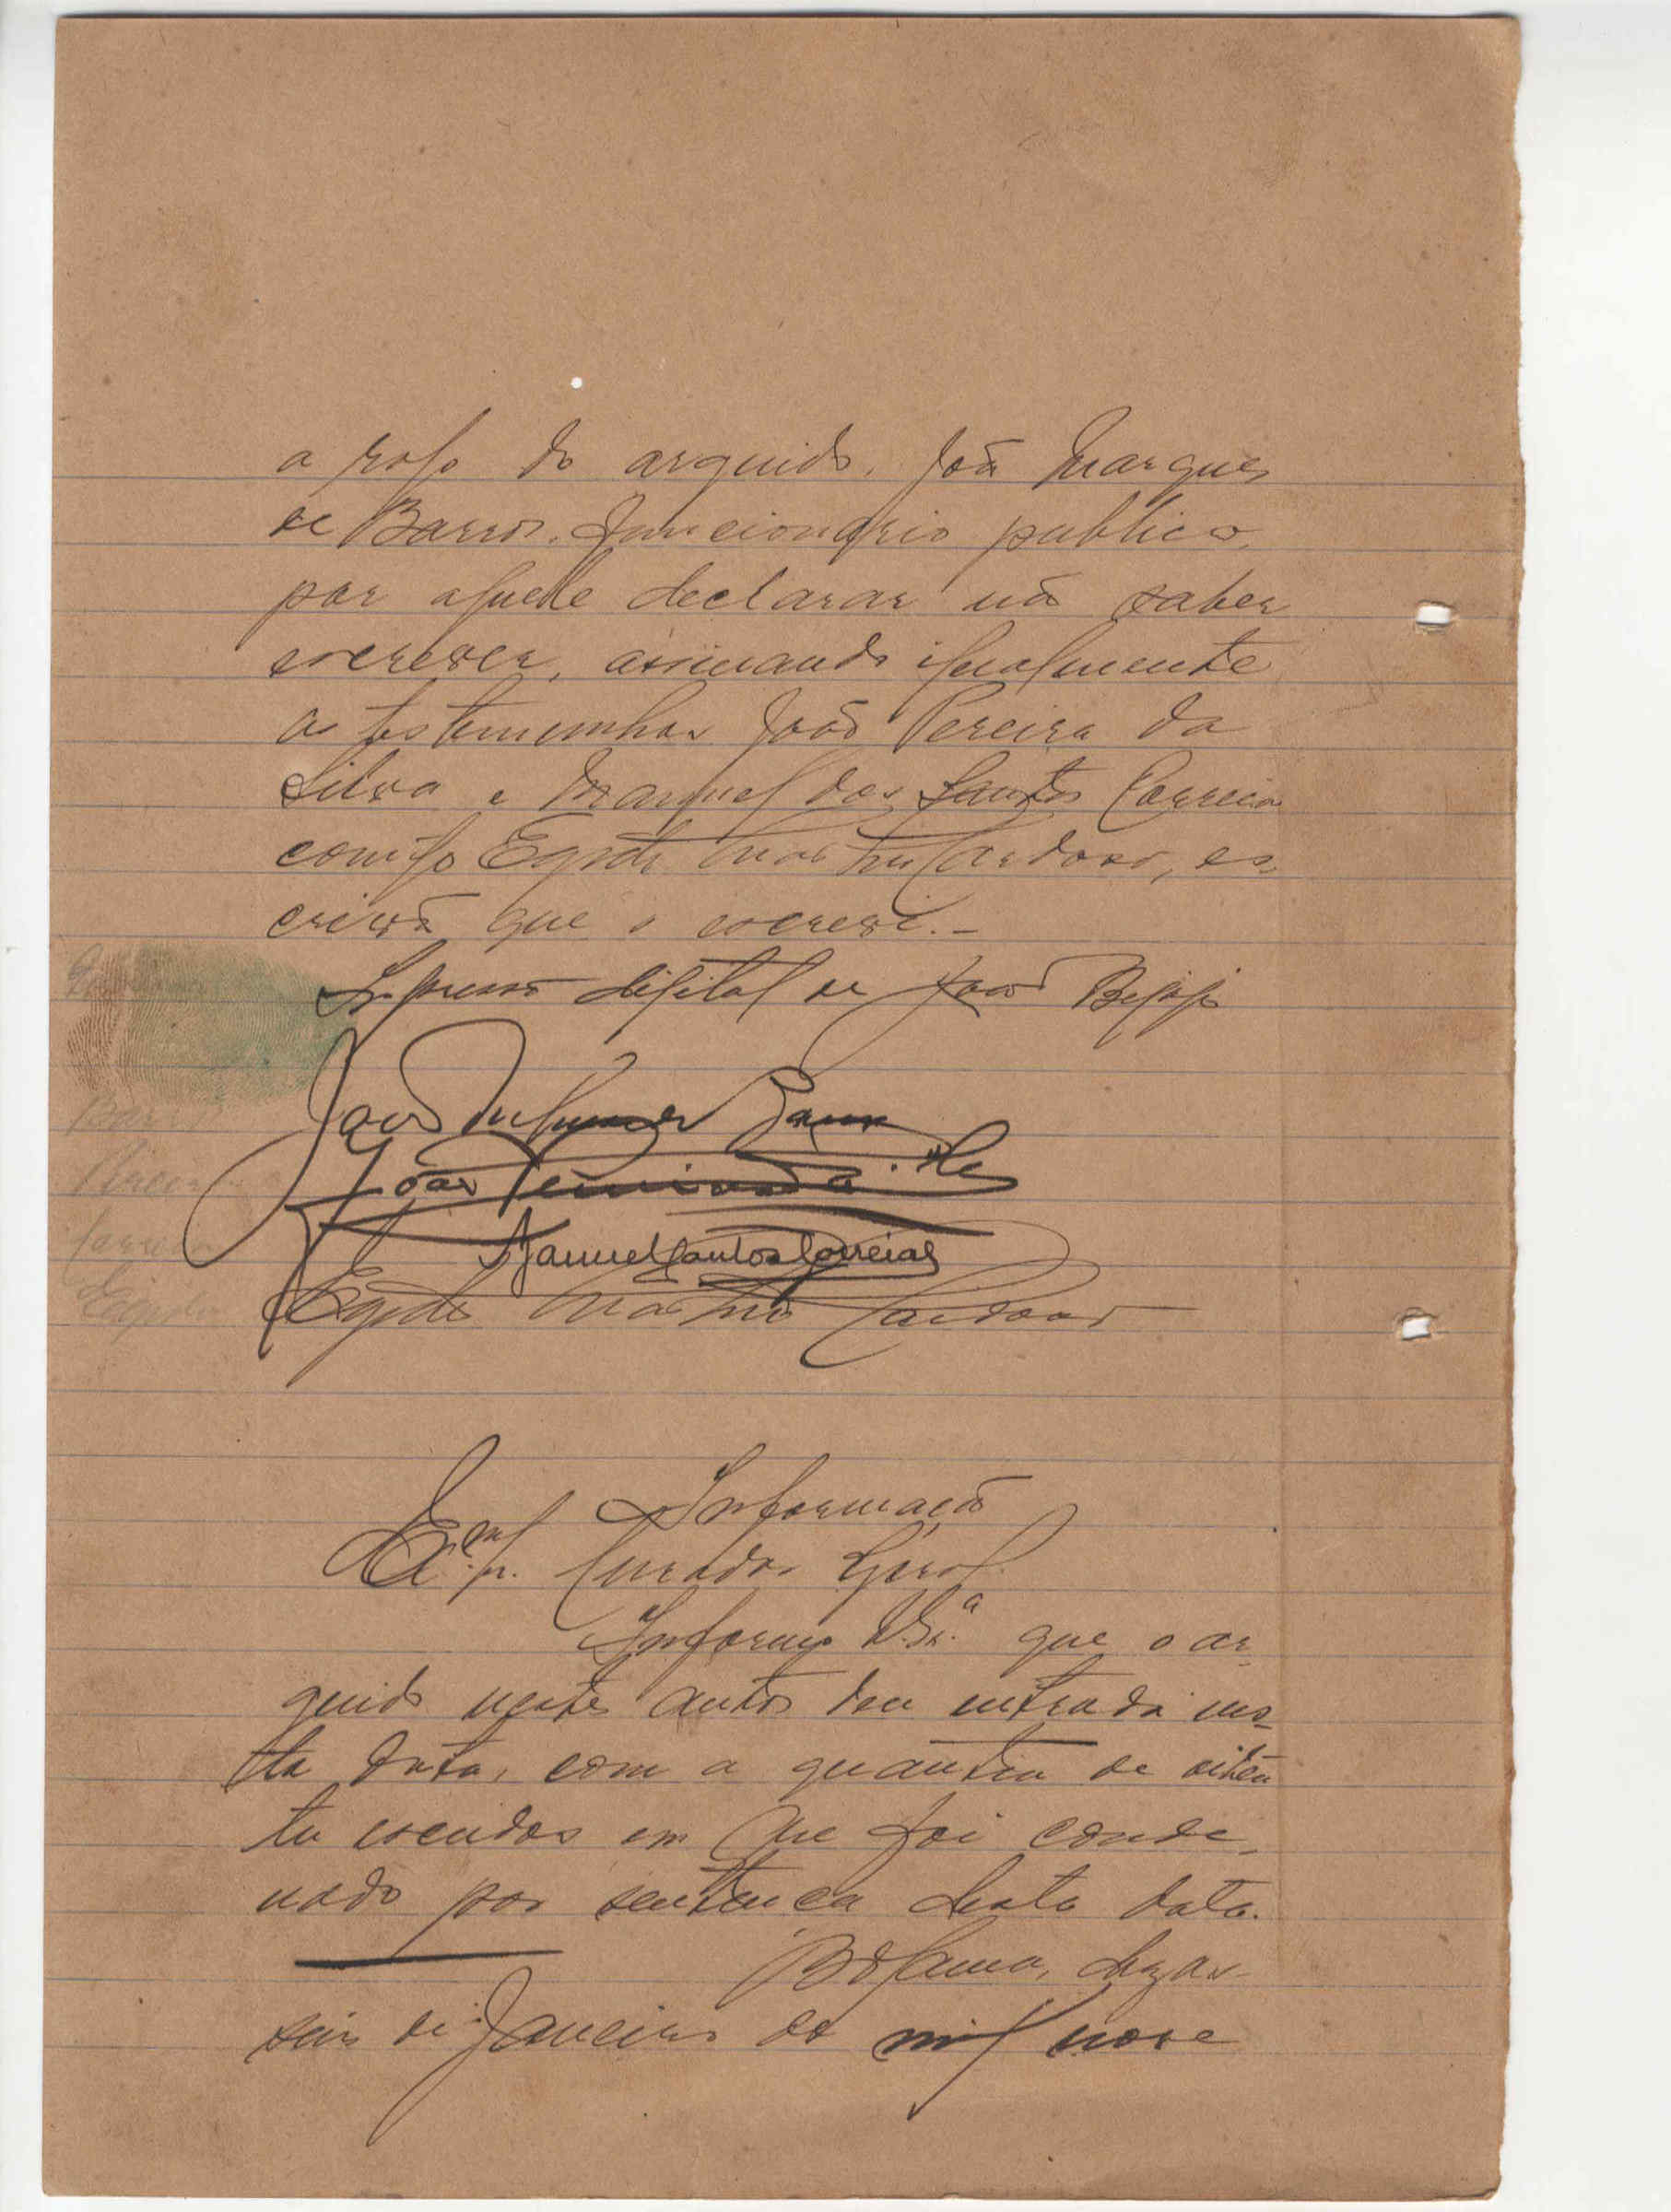 a rogo do arguido, João Marques
de Barros, funcionario publico,
por aquele declarar não saber
escrever, assinando igualmente
as testemunhas João Pereira da
Silva e Manuel dos Santos Correia
comigo Egidio Martins Cardoso, es-
crivão que o escrevi.-
Impressão digital de João
João Barros
João Pereira da Silva
Manuel Santos Correia
Egidio Martins Cardoso
Barros
Pereira
Correia
Egidio
Informação
Exmº. Sr. Curador Geral
Informo V. Sr.ª que o ar-
guido nestes autos deu entrada nes-
ta data, com a quantia de oiten
ta escudos em que foi conde-
nado por sentença desta data.
Bolama, dezas-
seis de Janeiro de mil nove